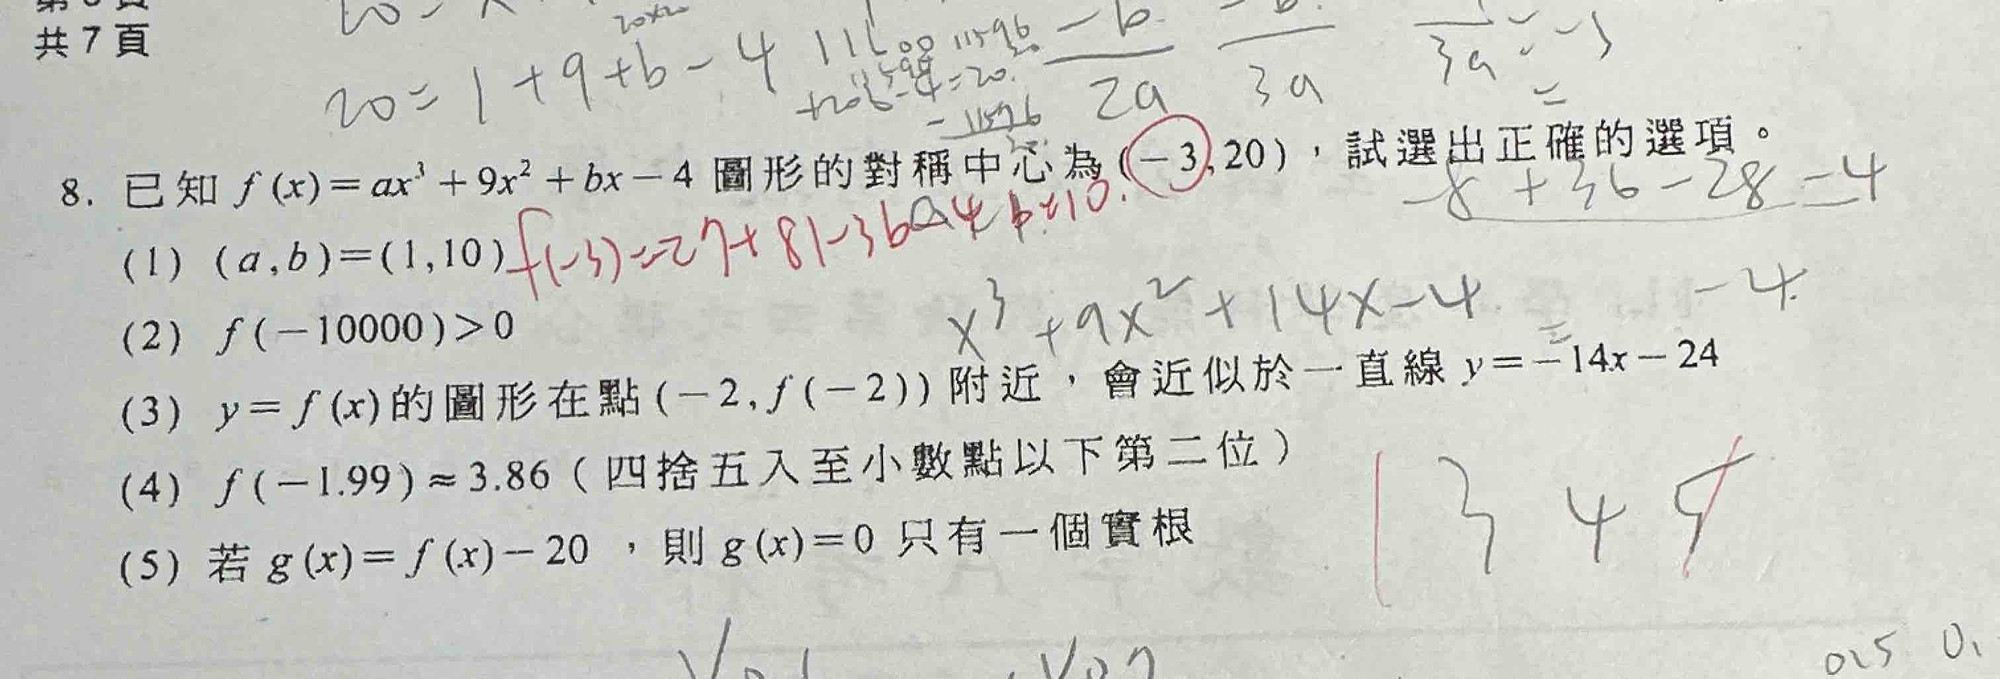 共 7 頁
20 = 1 + 9 + b - 4
-b
2a
3a
3a
8. 已知 f(x)=ax³+9x²+bx-4 圖形的對稱中心為 (-3,20)，試選出正確的選項。
-8+36-28=4
(1) (a,b)=(1,10) f(-3)=-27+81-3b-4 b=10.
x³+9x²+14x-4
-4
(2) f(-10000)>0
(3) y=f(x)的圖形在點(-2,f(-2))附近，會近似於一直線 y=-14x-24
(4) f(-1.99)≈3.86（四捨五入至小數點以下第二位）
(5) 若 g(x)=f(x)-20 ，則 g(x)=0 只有一個實根
1 3 4 5